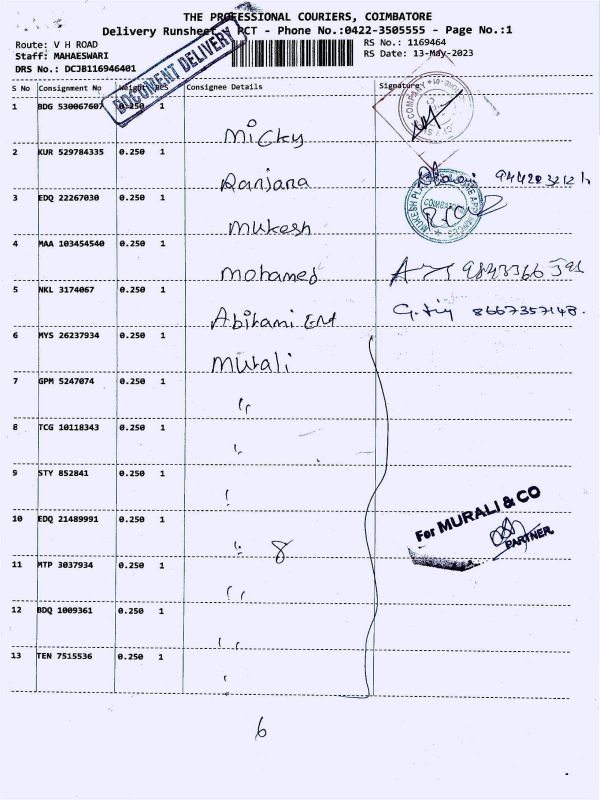 THE PROFESSIONAL COURIERS, COIMBATORE
Delivery Runsheet RCT - Phone No.:0422-3505555 - Page No.:1
Route: V H ROAD RS No.: 1169464
Staff: MAHAESWARI RS Date: 13-May-2023
DRS No.: DCJB116946401
DOCUMENT DELIVERY
S No Consignment No Weight PCS Consignee Details Signature
1 BDG 530067607 0.250 1 Micky
2 KUR 529784335 0.250 1 Ranjana
3 EDQ 22267030 0.250 1 Mukesh
4 MAA 103454540 0.250 1 Mohamed 9843366595
5 NKL 3174067 0.250 1 Abirami Ent 8667357148.
6 MYS 26237934 0.250 1 Murali
7 GPM 5247074 0.250 1 "
8 TCG 10118343 0.250 1 "
9 STY 852841 0.250 1 "
10 EDQ 21489991 0.250 1 " 8
For MURALI & CO
PARTNER
11 MTP 3037934 0.250 1 "
12 BDQ 1009361 0.250 1 "
13 TEN 7515536 0.250 1 "
6